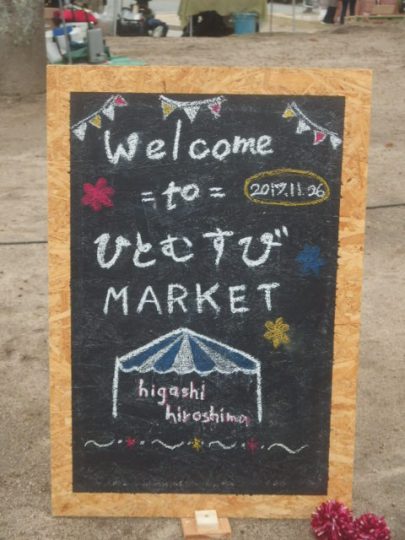 Welcome
=to=
2017.11.26
ひとむすび
MARKET
higashi
hiroshima